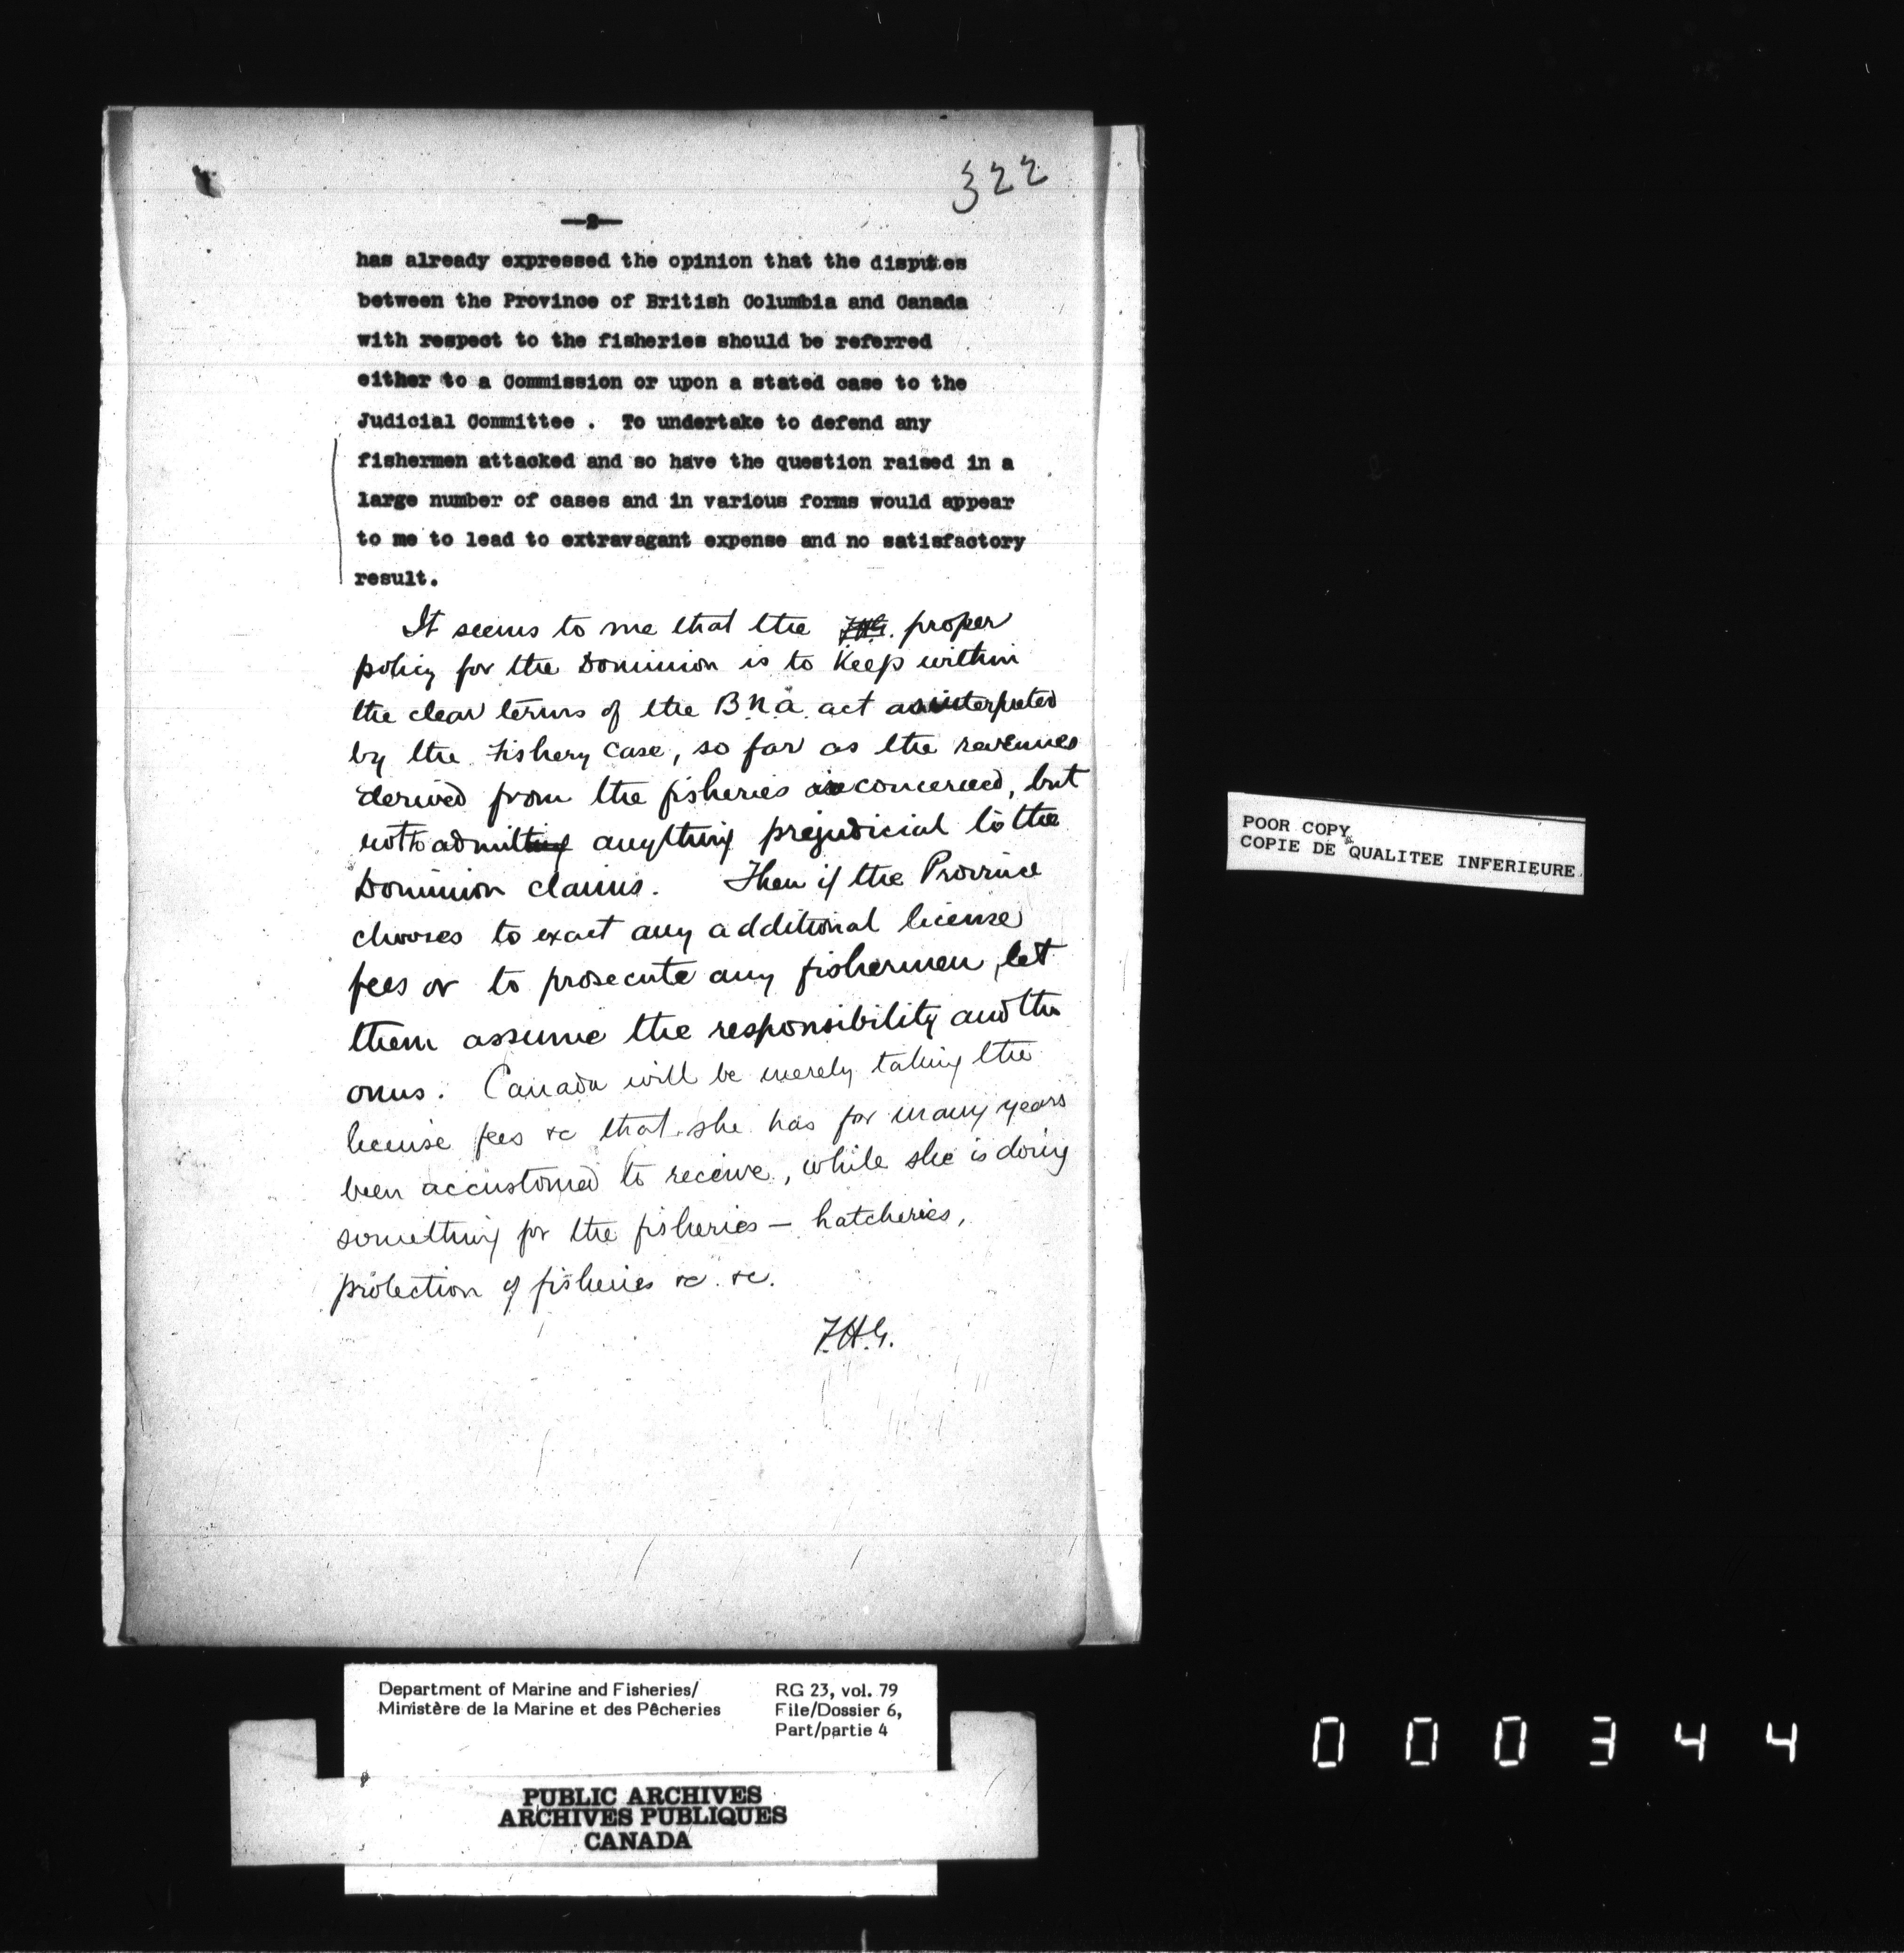 322
—2—
has already expressed the opinion that the disputes
between the Province of British Columbia and Canada
with respect to the fisheries should be referred
either to a Commission or upon a stated case to the
Judicial Committee . To undertake to defend any
fishermen attacked and so have the question raised in a
large number of cases and in various forms would appear
to me to lead to extravagant expense and no satisfactory
result.
It seems to me that the F.H.G. proper
policy for the Dominion is to keep within
the clear terms of the B N A act as interpreted
by the Fishery Case, so far as the revenues
derived from the fisheries is concerned, but
not to admitting anything prejudicial to the
Dominion claims. Then if the Province
chooses to exact any additional license
fees or to prosecute any fishermen, let
them assume the responsibility and the
onus. Canada will be merely taking the
license fees &c that she has for many years
been accustomed to receive, while she is doing
something for the fisheries — hatcheries,
protection of fisheries &c. &c.
F.H.G.
POOR COPY
COPIE DE QUALITEE INFERIEURE
Department of Marine and Fisheries/
Ministère de la Marine et des Pêcheries
RG 23, vol. 79
File/Dossier 6,
Part/partie 4
PUBLIC ARCHIVES
ARCHIVES PUBLIQUES
CANADA
000344